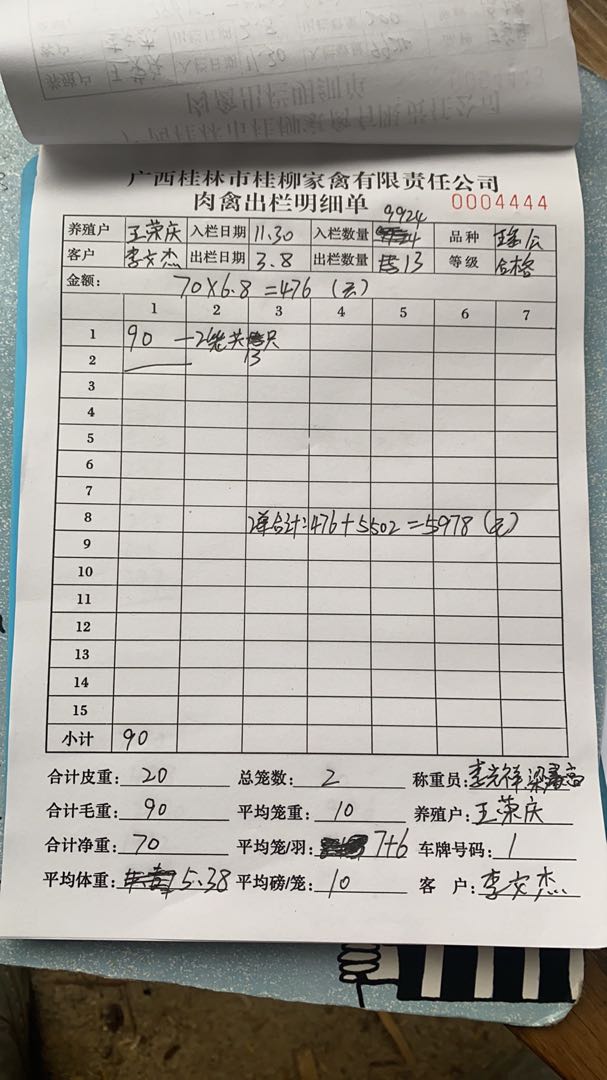 广西桂林市桂柳家禽有限责任公司
肉禽出栏明细单 0004444
9924
养殖户 王荣庆 入栏日期 11.30 入栏数量 品种
客户 李文杰 出栏日期 3.8 出栏数量 13 等级 合格
金额: 70×6.8=476(元)
1 2 3 4 5 6 7
1 90 —2笼共 只
2 13
3
4
5
6
7
8 2单合计:476+5502=5978(元)
9
10
11
12
13
14
15
小计 90
合计皮重: 20 总笼数: 2 称重员: 李光祥
合计毛重: 90 平均笼重: 10 养殖户: 王荣庆
合计净重: 70 平均笼/羽: 7+6 车牌号码: 1
平均体重: 5.38 平均磅/笼: 10 客 户: 李文杰